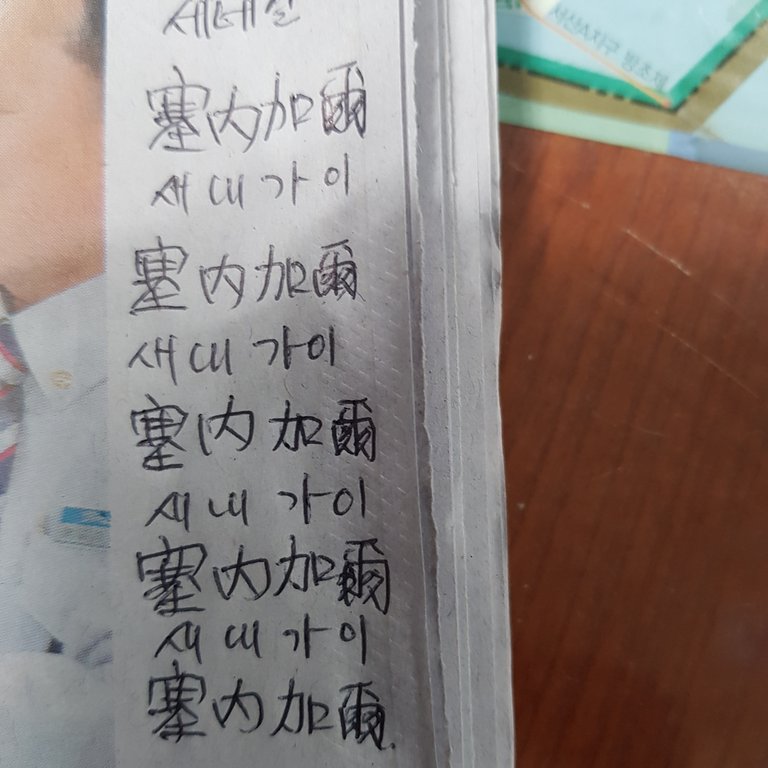 塞内加爾
새내가이
塞内加爾
새내가이
塞内加爾
새내가이
塞内加爾
새내가이
塞内加爾
서산A지구 방조제